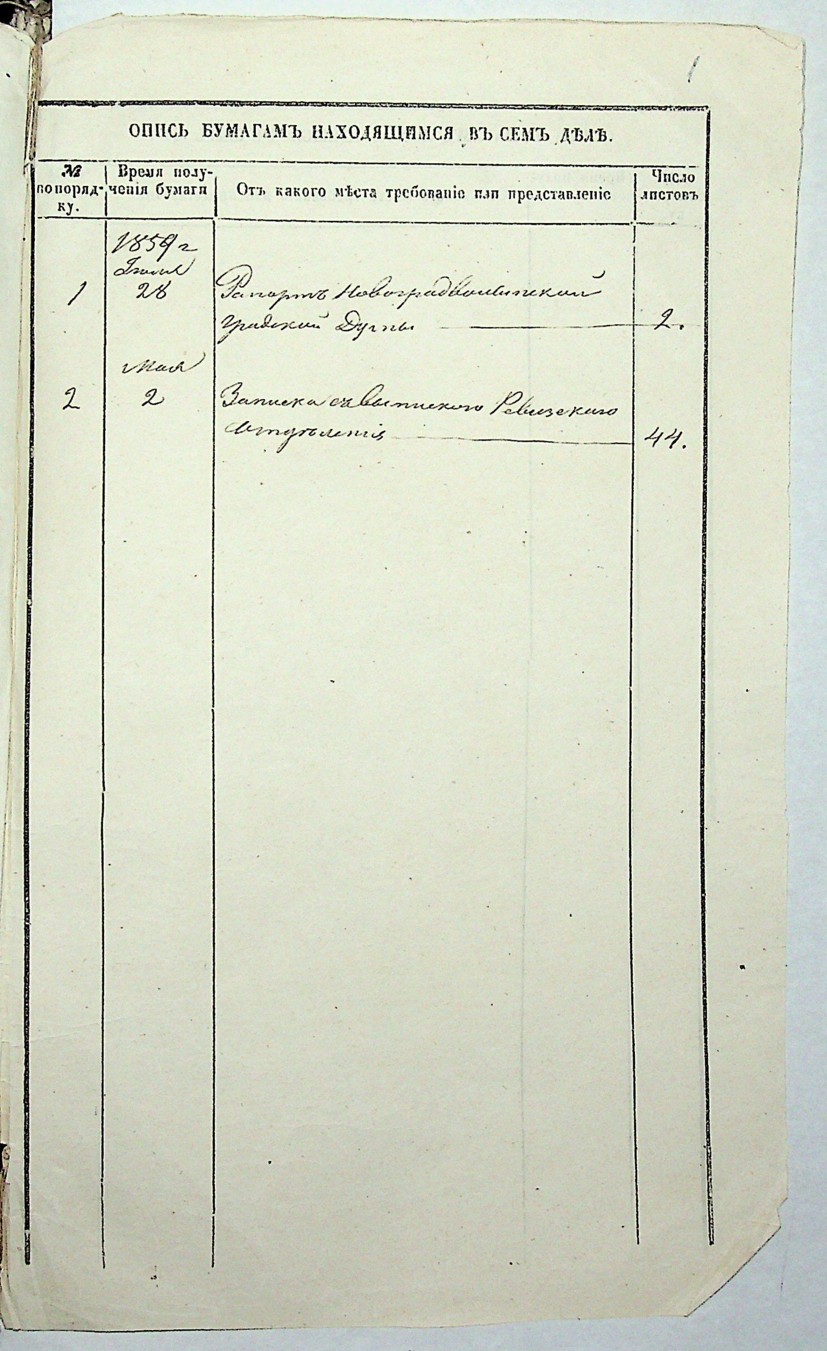 1
ОПИСЬ БУМАГАМЪ НАХОДЯЩИМСЯ ВЪ СЕМЪ ДѢЛѢ.
№ по поряд-ку.
Время полу-ченія бумаги
Отъ какого мѣста требованіе или представленіе
Число листовъ
1859 г
Іюля
1 28 Рапортъ Новоградволынской
градской Думы 2.
Мая
2 2 Записка съ выпискою Ревизского
Отдѣленія 44.